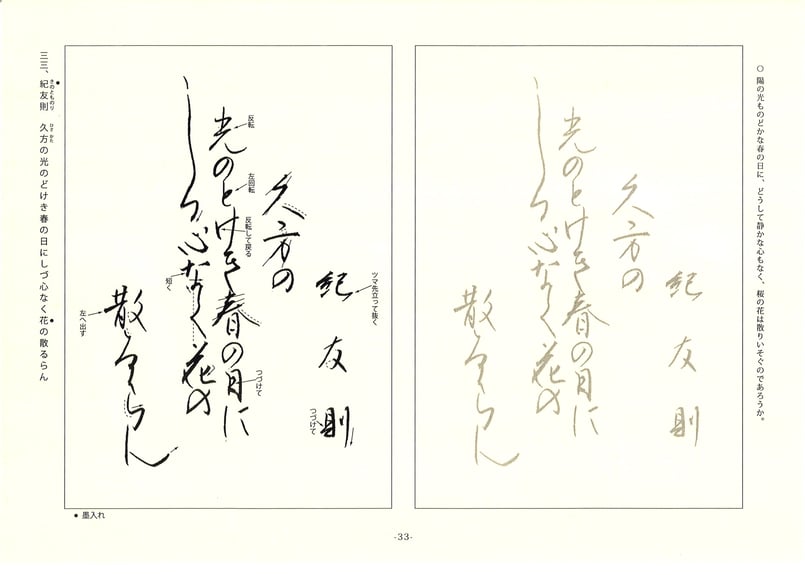 ○ 陽の光ものどかな春の日に、どうして静かな心もなく、桜の花は散りいそぐのであろうか。
紀友則
久方の
光のとけき春の日に
しつ心なく花の
散るらん
紀友則
ツマ先立って抜く
つづけて
久方の
光のとけき春の日に
反転
左回転
反転して戻る
つづけて
しつ心なく花の
短く
散るらん
左へ出す
三三、紀友則 久方の光のどけき春の日にしづ心なく花の散るらん
きのとものり
ひさかた
● 墨入れ
-33-